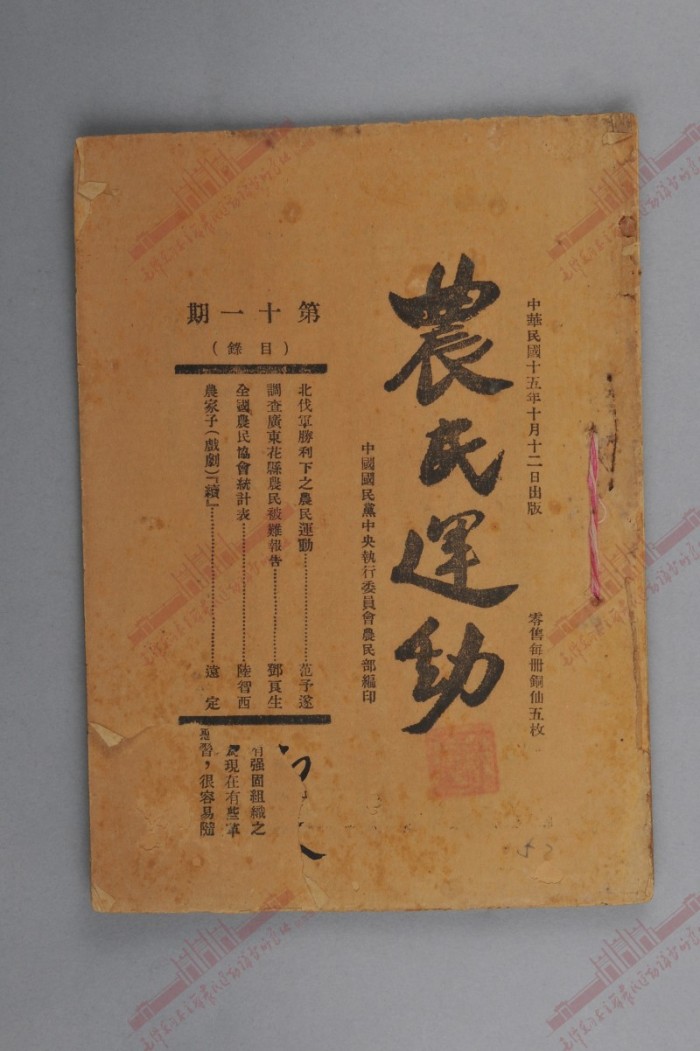 中華民國十五年十月十二日出版
零售每冊銅仙五枚
農民運動
中國國民黨中央執行委員會農民部編印
第十一期
（目錄）
北伐軍勝利下之農民運動……范子遂
調查廣東花縣農民被難報告……鄧良生
全國農民協會統計表……陸智西
農家子（戲劇）『續』……遠定
强固組織之
現在有些軍
習，很容易隨